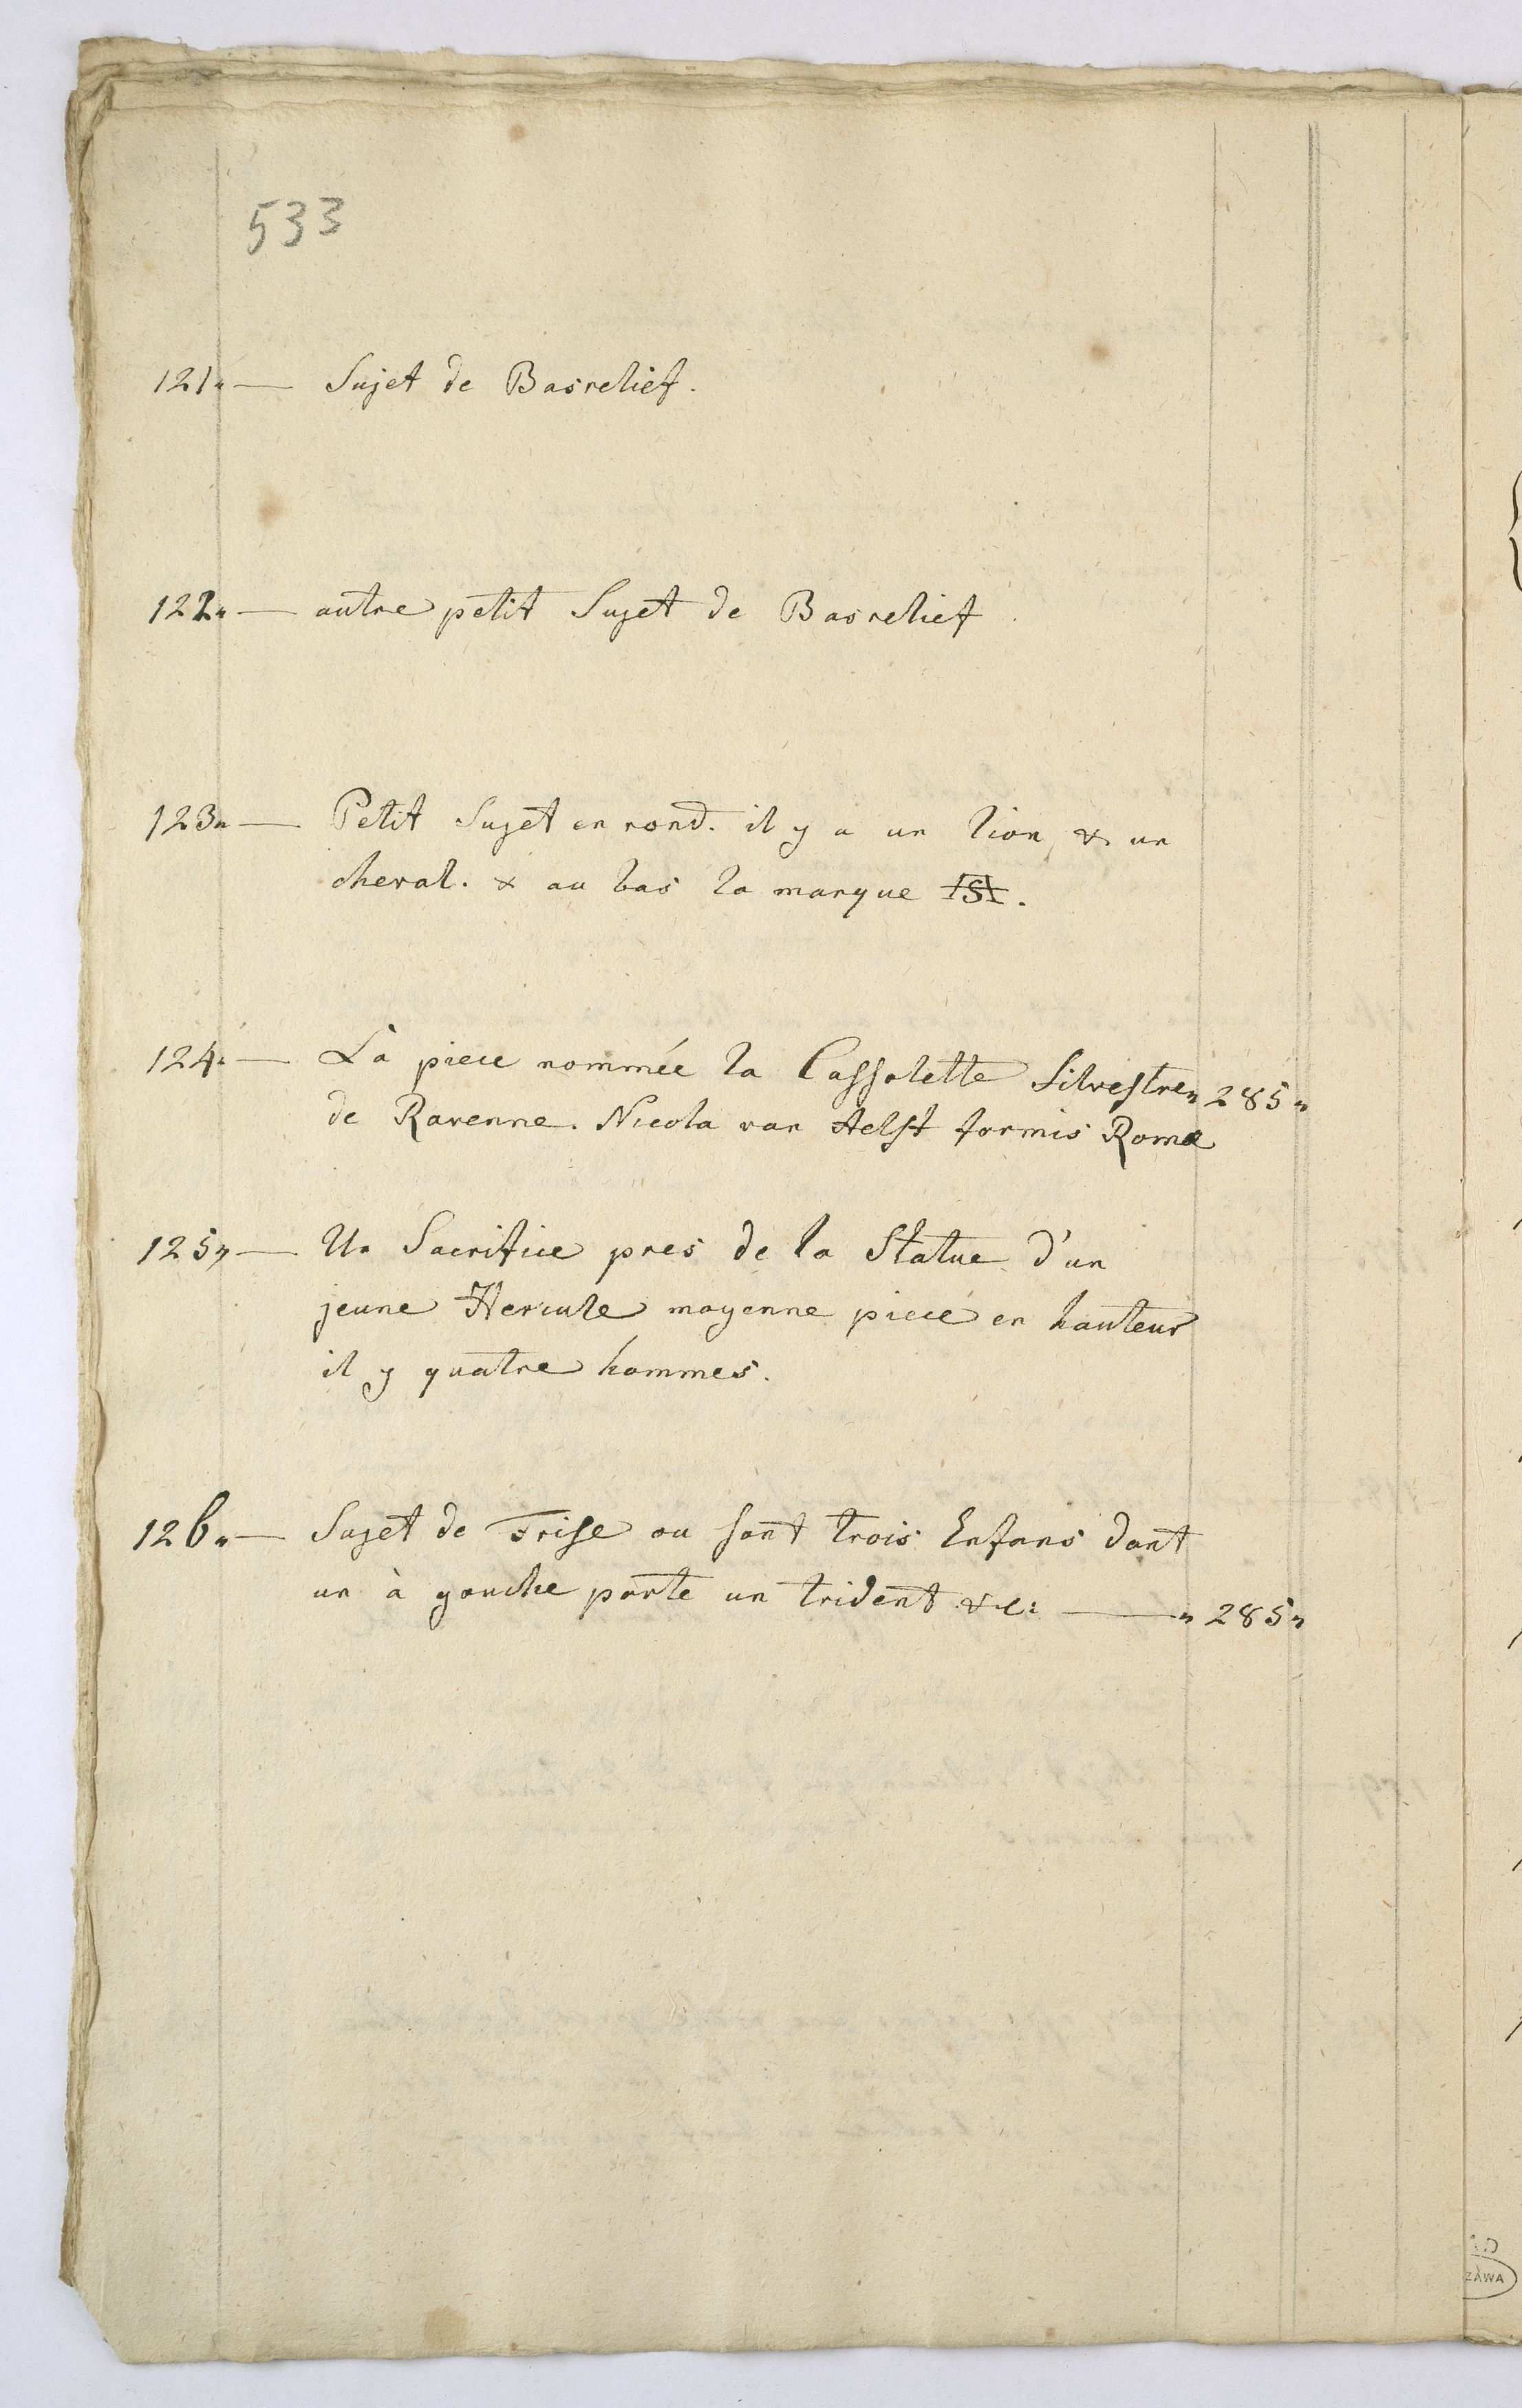 533
121„ — Sujet de Basrelief.
122„ — autre petit Sujet de Basrelief
123„ — Petit Sujet en rond. il y a un lion & un
cheval. & au bas la marque
124„ — La piece nommée la Cassolette Silvestre „ 285 „
de Ravenne. Nicola van Aelst formis Romæ
125„ — Un Sacrifice pres de la Statue d'un
jeune Hercule moyenne piece en hauteur
il y quatre hommes.
126„ — Sujet de Frise ou sont trois Enfans dont
un à gauche porte un trident &c: — „ 285 „
ZAWA